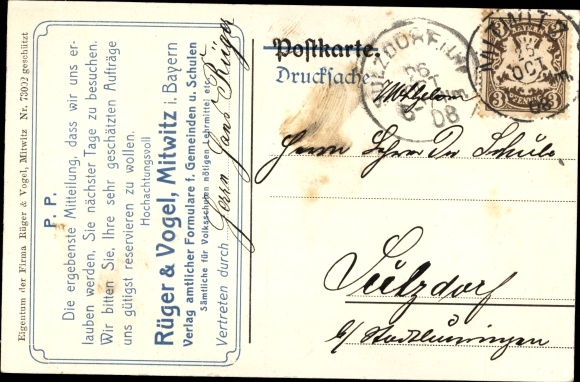 Eigentum der Firma Rüger & Vogel, Mitwitz Nr. 73002 geschützt
P. P.
Die ergebenste Mitteilung, dass wir uns er-
lauben werden, Sie nächster Tage zu besuchen.
Wir bitten Sie, Ihre sehr geschätzten Aufträge
uns gütigst reservieren zu wollen.
Hochachtungsvoll
Rüger & Vogel, Mitwitz i. Bayern
Verlag amtlicher Formulare f. Gemeinden u. Schulen
Sämtliche für Volksschulen nötigen Lehrmittel etc.
Vertreten durch Herrn Hans Rüger
Postkarte
Drucksache
SULZDORF
6 OCT
08
MITWITZ
5 OCT
08
BAYERN
3 PFENNIG 3
Herrn
Sulzdorf
b/ Stadtlauringen